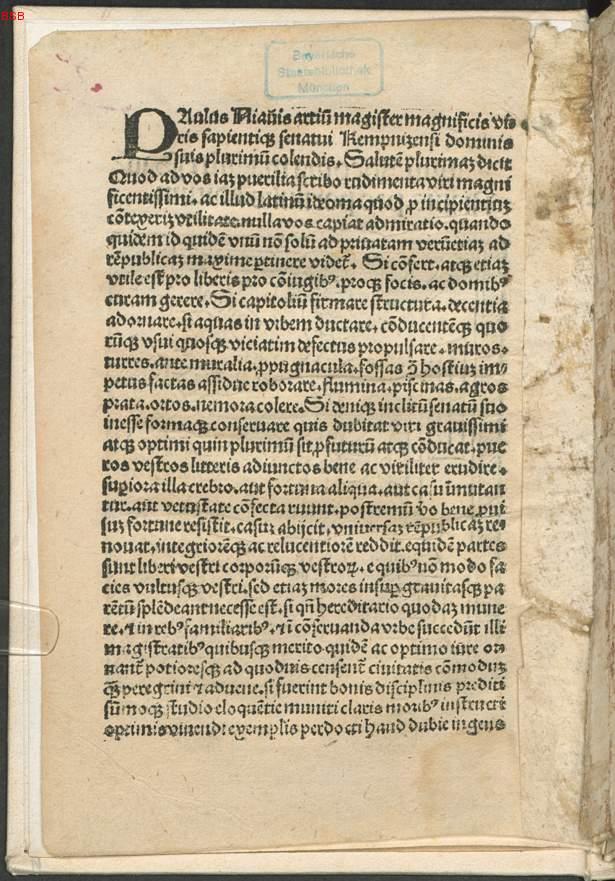 BSB
Bayerische
Staatsbibliothek
München
PAulus Niauis artiū magister magnificis vi⸗
ris sapientiqꝫ senatui Kempnizensi dominis
suis plurimū colendis. Salutē plurimaꝫ dicit
Quod ad vos iaꝫ puerilia scribo rudimenta viri magni
ficentissimi. ac illud latinū ideoma quod ꝓ incipientiuꝫ
cōtexeriꝫ vtilitate nulla vos capiat admiratio. quando
quidem id quidē vnū nō solū ad priuatam verūetiaꝫ ad
rēpublicaꝫ maxime ꝑtinere videt᷑. Si cōfert. atqꝫ etiaꝫ
vtile est pro liberis pro cōiugibꝰ. proqꝫ focis. ac domibꝰ
curam gerere. Si capitoliū firmare structura. decentia
adornare. si aquas in vrbem ductare. cōducentēqꝫ quo
rūqꝫ vsui quosqꝫ viciatim defectus propulsare. muros.
turres. ante muralia. ꝓpugnacula. fossas ꝯ̄ hostiuꝫ im⸗
petus factas assidue roborare. flumina. piscinas. agros
prata. ortos. nemora colere. Si deniqꝫ inclitū senatū suo
inesse formaqꝫ conseruare quis dubitat viri grauissimi
atqꝫ optimi quin plurimū sit ꝓfuturū atqꝫ cōducat. pue
ros vestros litteris adiunctos bene ac viriliter erudire.
suꝑiora illa crebro. aut fortuna aliqua. aut casu īmutan
tur. aut vetustate cōfecta ruunt. postremū v̊o bene. pui
suꝫ fortune resistit. casuꝫ abijcit. vniuersaꝫ rēpublicaꝫ re⸗
nouat. integriorēqꝫ ac relucentiorē reddit. equidem partes
sunt liberi vestri corporūqꝫ vestroꝝ. e quibꝰ nō modo fa
cies vultusqꝫ vestri. sed etiaꝫ mores insuꝑ grauitasqꝫ pa
rētū splēdeant necesse est. si qn̄ hereditario quodaꝫ mune
re. ⁊ in rebꝰ familiaribꝰ. ⁊ ī cōseruanda vrbe succedūt illi
magistratibꝰ quibusqꝫ merito quidē ac optimo iure or⸗
nant᷑ potioresqꝫ ad quoduis censent᷑ ciuitatis cōmoduꝫ
qꝫ̄ peregrini ⁊ aduene. si fuerint bonis disciplinis prediti
sūmoqꝫ studio eloquētie muniti claris moribꝰ instructi
optimis viuendi exemplis perdocti haud dubie ingens